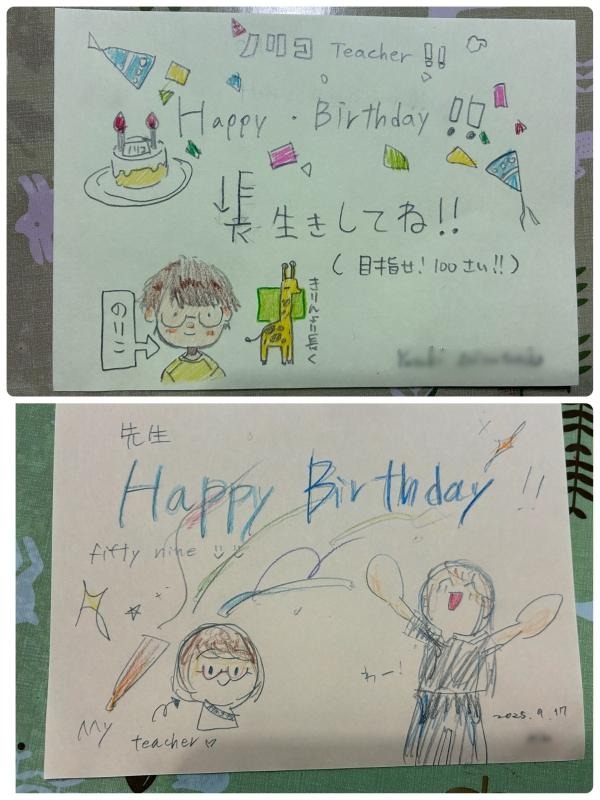 ノリコ Teacher!!
Happy・Birthday!!
ノリコ
長生きしてね!!
(目指せ!100さい!!)
のりこ
きりんより長く
先生
Happy Birthday!!
fifty nine
わー!
My teacher♡
2025.9.17